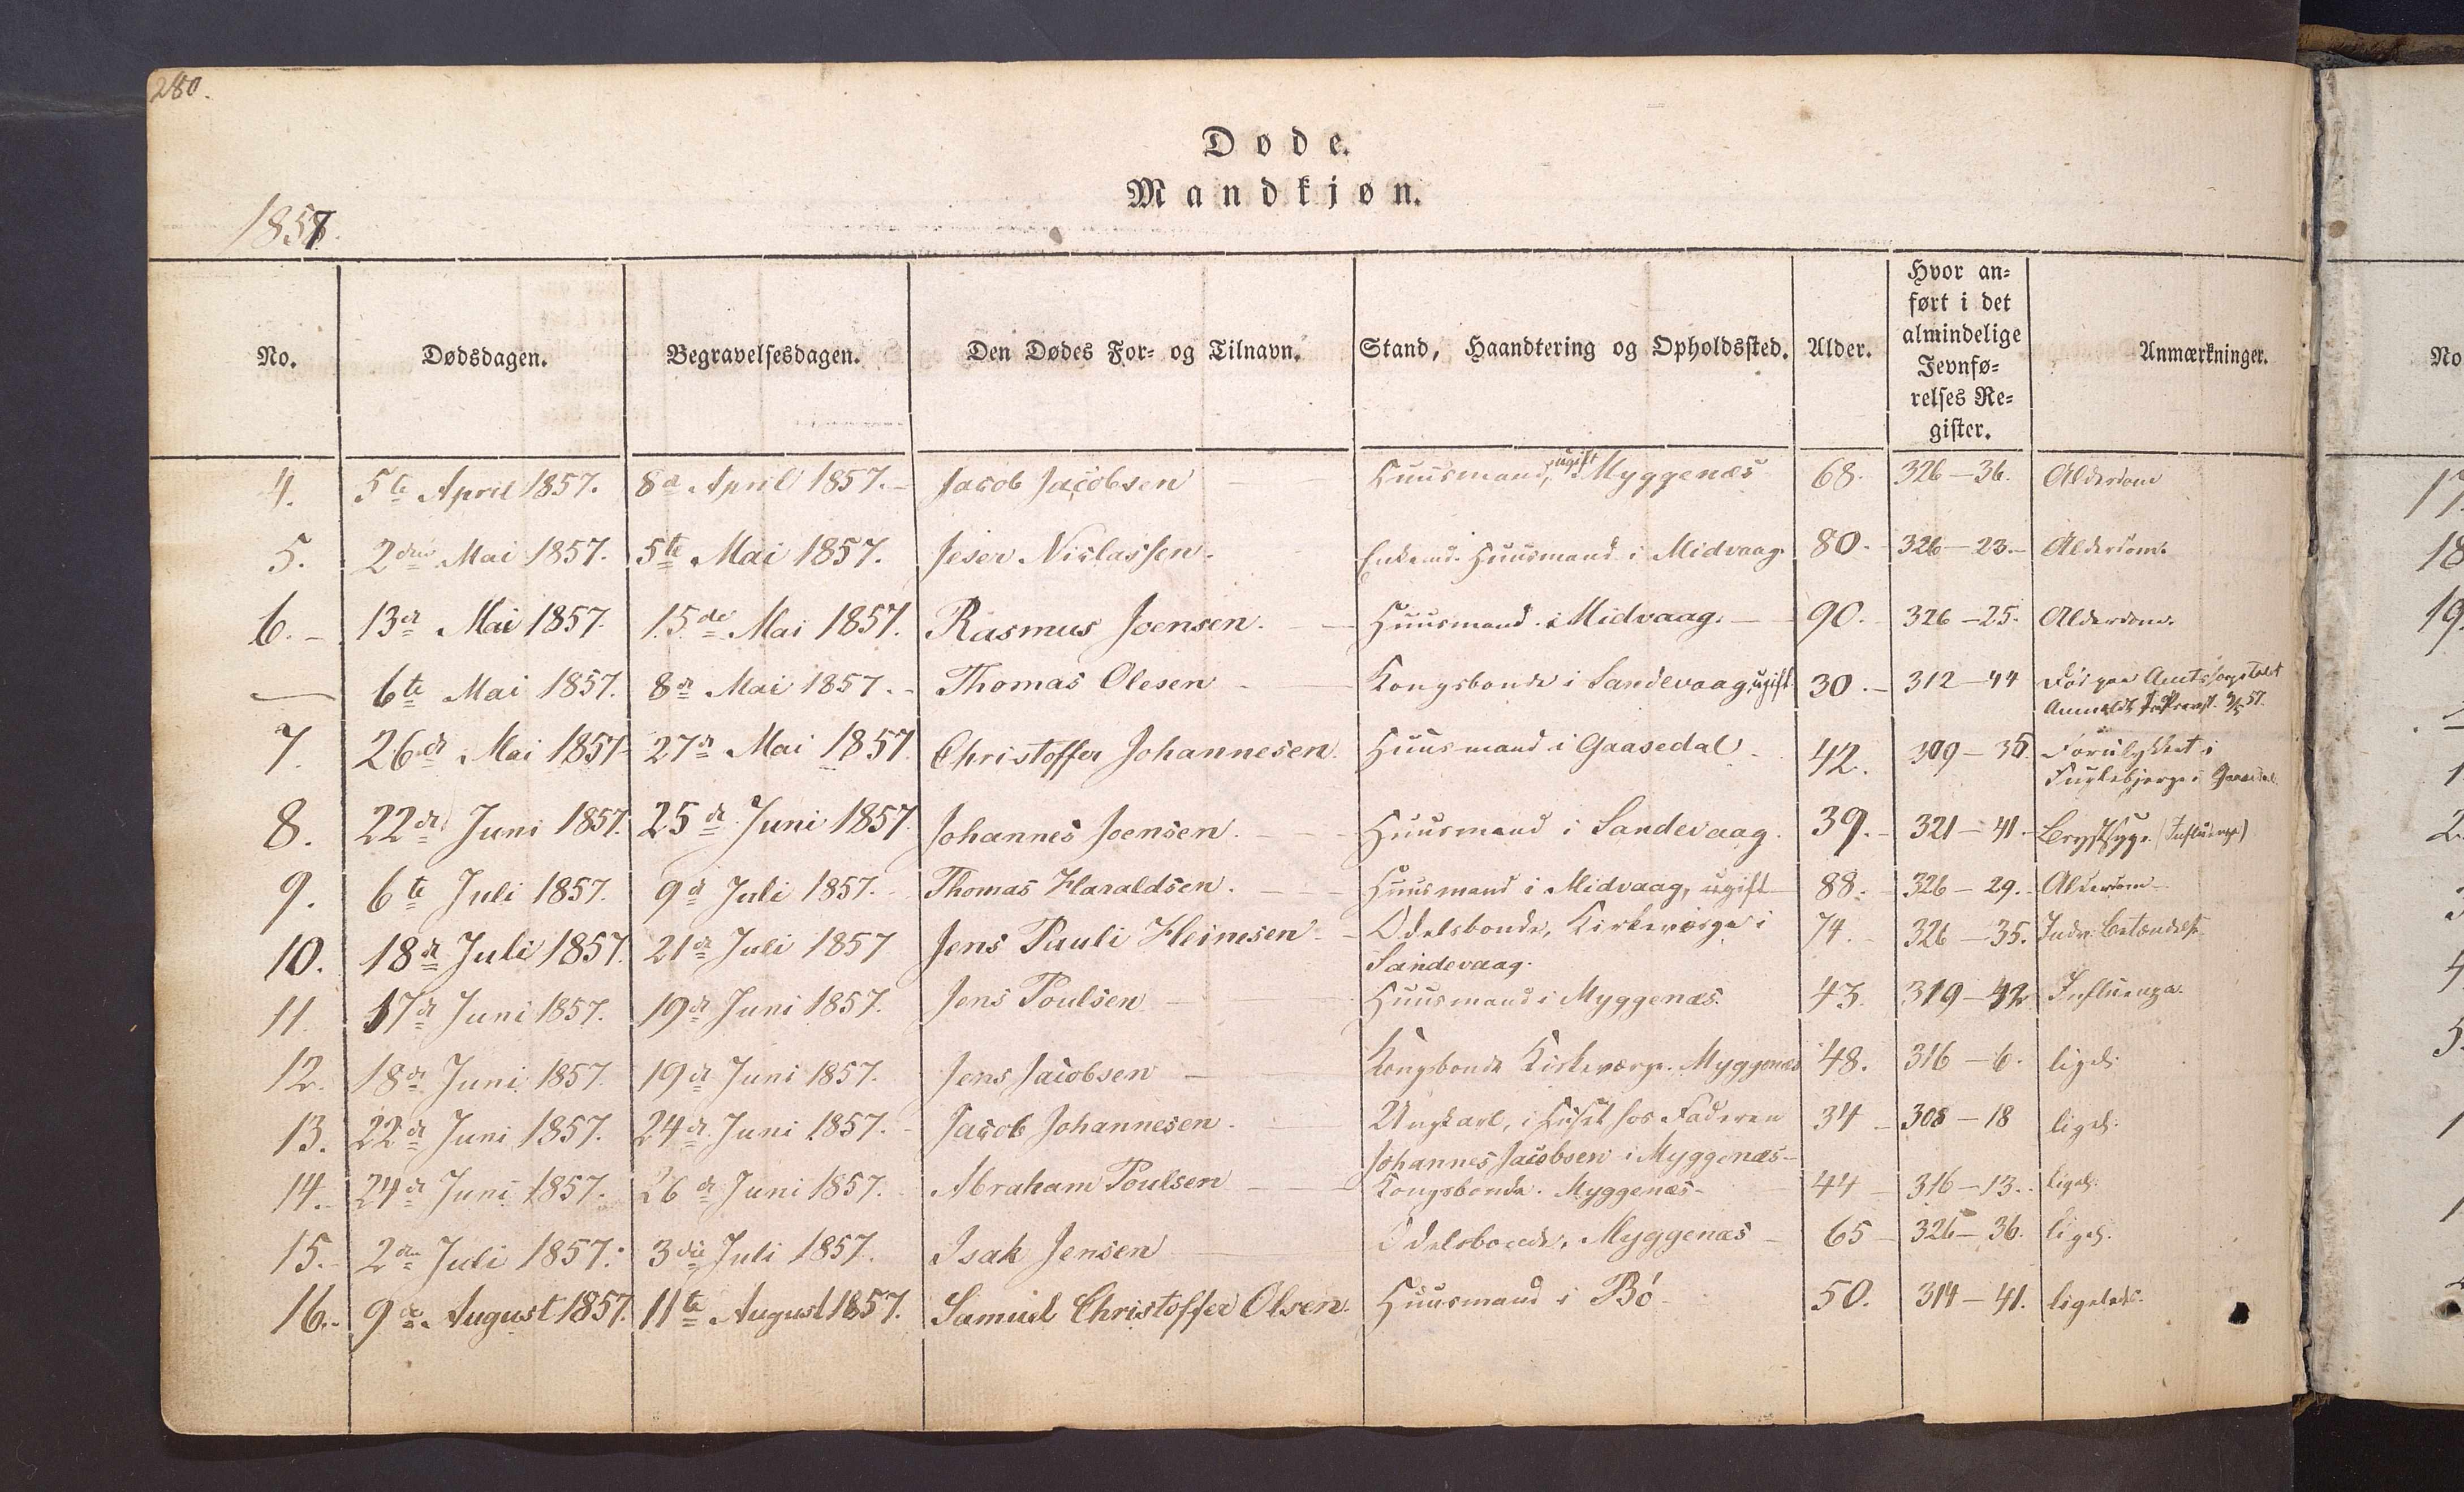 280.
Døde.
Mandkjøn.
1857.
No. Dødsdagen. Begravelsesdagen. Den Dødes For- og Tilnavn. Stand, Haandtering og Opholdssted. Alder. Hvor an-
ført i det
almindelige
Jevnfø-
relses Re-
gister. Anmærkninger.
4. 5te April 1857. 8de April 1857. Jacob Jacobsen Huusmand, ugift Myggenæs 68. 326-36. Alderdom
5. 2den Mai 1857. 5te Mai 1857. Niclassen. Enkemd. Huusmand i Midvaag. 80. 326-23. Alderdom.
6. 13de Mai 1857. 15de Mai 1857. Rasmus Joensen. Huusmand i Midvaag. 90. 326-25. Alderdom.
— 6te Mai 1857. 8de Mai 1857. Thomas Olesen Kongsbonde i Sandevaag, ugift 30. 312-44 Død paa Amtshospitalet
Anmeldt
7. 26de Mai 1857 27de Mai 1857 Christoffer Johannesen. Huusmand i Gaasedal 42. 309-35 Forulykket i
Fuglebjerge i Gaasedal
8. 22de Juni 1857. 25de Juni 1857. Johannes Joensen. Huusmand i Sandevaag. 39. 321-41. Brystsyge (Influenza)
9. 6te Juli 1857. 9de Juli 1857. Thomas Haraldsen. Huusmand i Midvaag, ugift 88. 326-29. Alderdom
10. 18de Juli 1857. 21de Juli 1857 Jens Pauli Heinesen Odelsbonde, Kirkeværge i 74. 326-35. Betændelse
Sandevaag.
11. 17de Juni 1857. 19de Juni 1857. Jens Poulsen Huusmand i Myggenæs. 43. 319-42 Influenza.
12. 18de Juni 1857. 19de Juni 1857. Jens Jacobsen Kongsbonde Kirkeværge. Myggenæs 48. 316-6. ligel.
13. 22de Juni 1857. 24de Juni 1857. Jacob Johannesen. Ungkarl, i Huset hos Faderen 34 308-18 ligel.
Johannes Jacobsen i Myggenæs-
14. 24de Juni 1857. 26de Juni 1857. Abraham Poulsen Kongsbonde. Myggenæs- 44 316-13. ligel.
15. 2den Juli 1857. 3die Juli 1857. Isak Jensen Odelsbonde. Myggenæs 65 326-36. ligel.
16. 9de August 1857. 11te August 1857. Samuel Christoffer Olsen. Huusmand i Bø 50. 314-41. ligeledes.